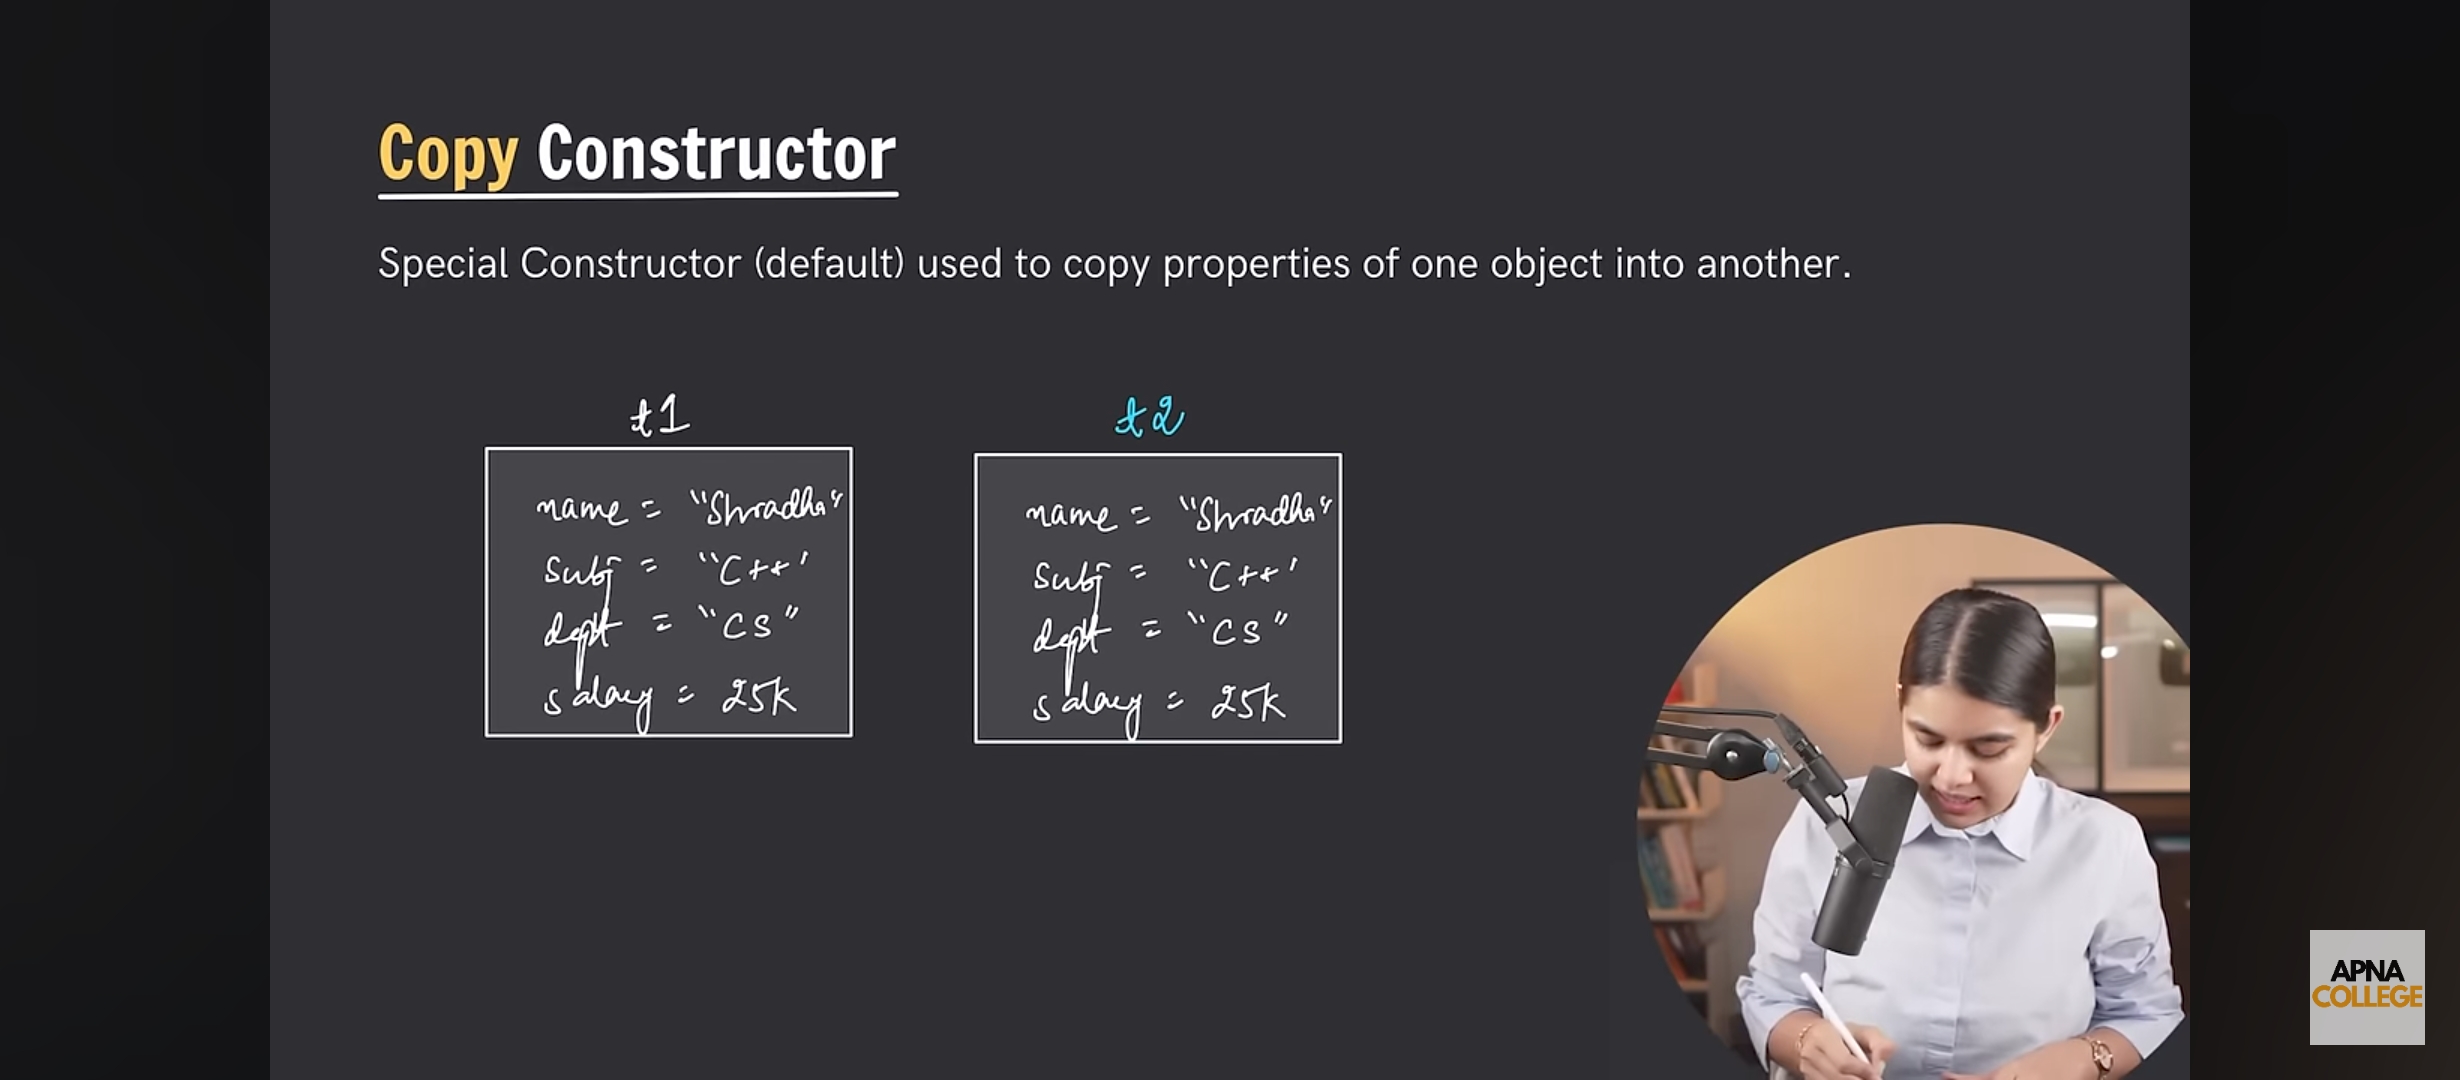 Copy Constructor
Special Constructor (default) used to copy properties of one object into another.
t1
name = "Shradha"
subj = "C++'
dept = "CS"
salary = 25k
t2
name = "Shradha"
subj = "C++'
dept = "CS"
salary = 25k
APNA
COLLEGE